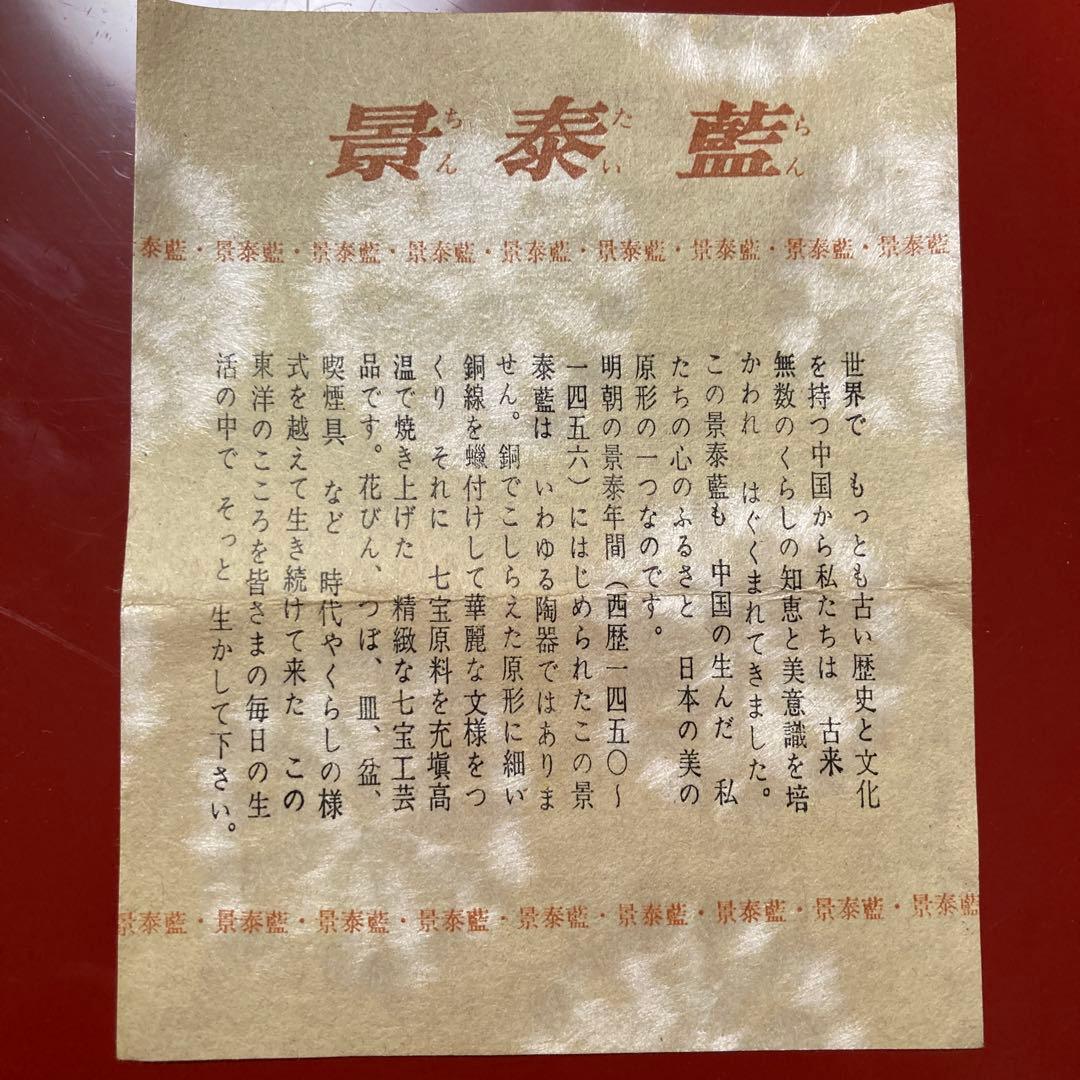 景泰藍
ちんたいらん
泰藍・景泰藍・景泰藍・景泰藍・景泰藍・景泰藍・景泰藍・景泰藍・景泰藍
世界で　もっとも古い歴史と文化
を持つ中国から私たちは　古来
無数のくらしの知恵と美意識を培
かわれ　はぐくまれてきました。
この景泰藍も　中国の生んだ　私
たちの心のふるさと　日本の美の
原形の一つなのです。
明朝の景泰年間（西歴一四五〇〜
一四五六）にはじめられたこの景
泰藍は　いわゆる陶器ではありま
せん。銅でこしらえた原形に細い
銅線を蠟付けして華麗な文様をつ
くり　それに　七宝原料を充塡高
温で焼き上げた　精緻な七宝工芸
品です。花びん、つぼ、皿、盆、
喫煙具　など　時代やくらしの様
式を越えて生き続けて来た　この
東洋のこころを皆さまの毎日の生
活の中で　そっと　生かして下さい。
景泰藍・景泰藍・景泰藍・景泰藍・景泰藍・景泰藍・景泰藍・景泰藍・景泰藍